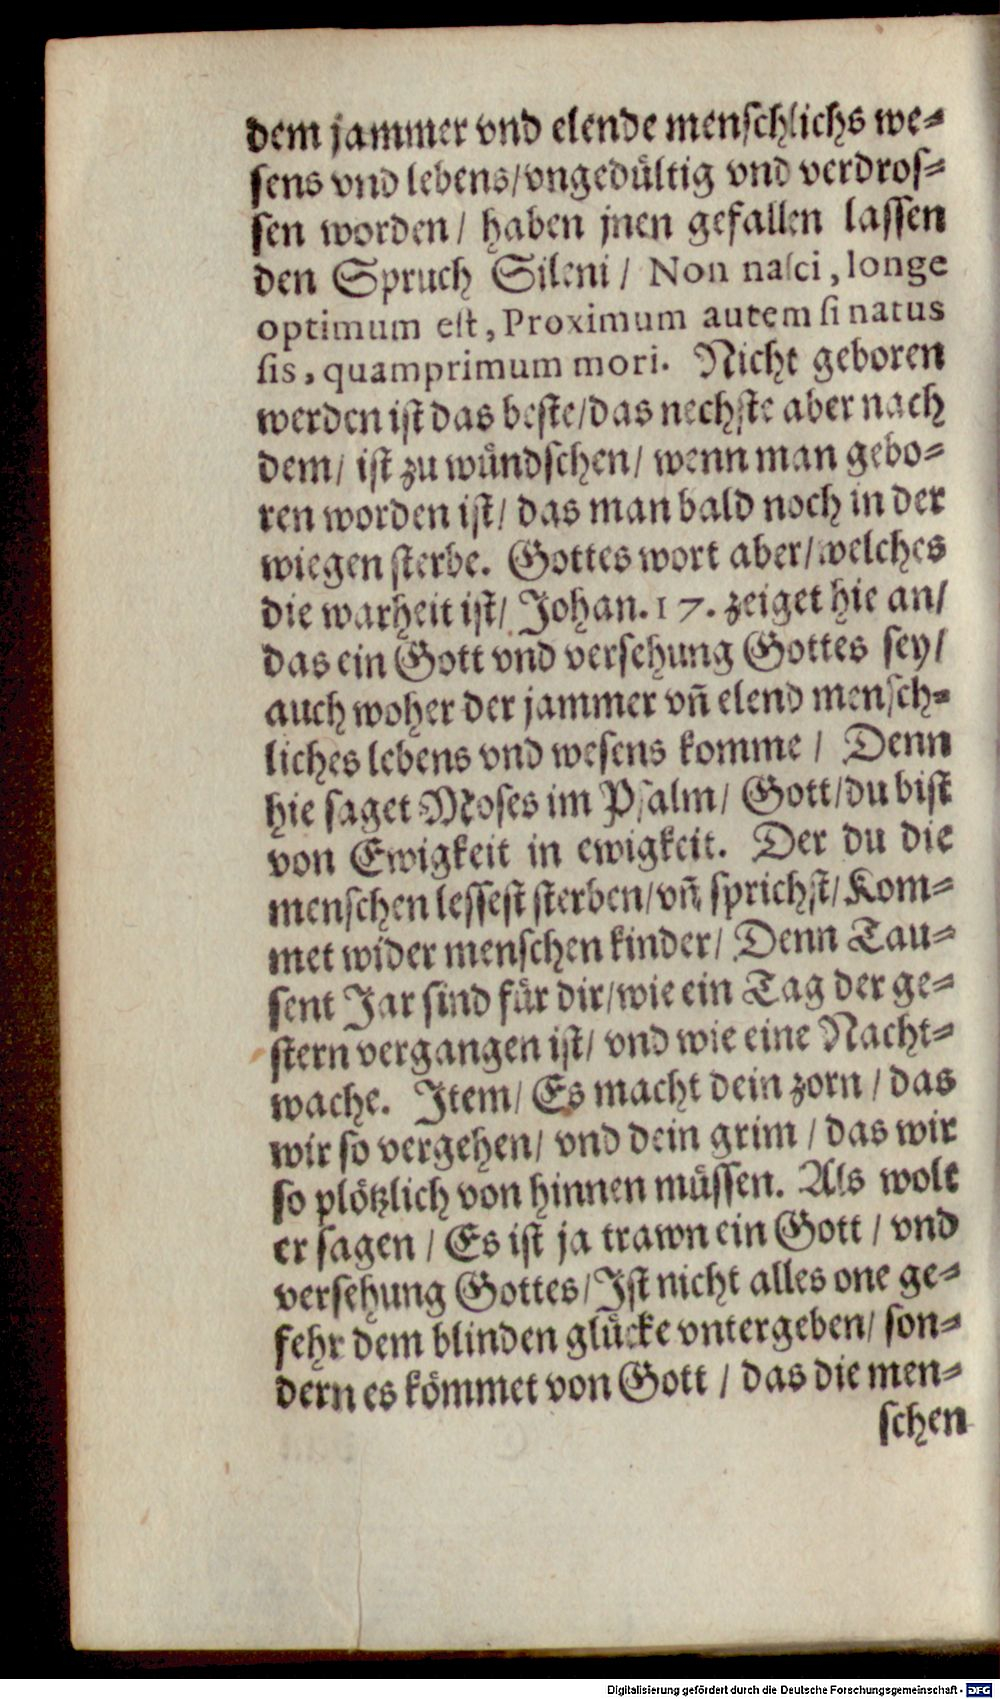 dem jammer vnd elende menſchlichs we⸗
ſens vnd lebens/vngedültig vnd verdroſ⸗
ſen worden/ haben jnen gefallen laſſen
den Spruch Sileni/ Non naſci, longe
optimum eſt, Proximum autem ſi natus
ſis, quamprimum mori. Nicht geboren
werden iſt das beſte/das nechſte aber nach
dem/ iſt zu wündſchen/ wenn man gebo⸗
ren worden iſt/ das man bald noch in der
wiegen ſterbe. Gottes wort aber/welches
die warheit iſt/ Johan. 17. zeiget hie an/
das ein Gott vnd verſehung Gottes ſey/
auch woher der jammer vñ elend menſch⸗
liches lebens vnd weſens komme / Denn
hie ſaget Moſes im Pſalm/ Gott/du biſt
von Ewigkeit in ewigkeit. Der du die
menſchen leſſeſt ſterben/vñ ſprichſt/Kom⸗
met wider menſchen kinder/ Denn Tau⸗
ſent Jar ſind für dir/wie ein Tag der ge⸗
ſtern vergangen iſt/ vnd wie eine Nacht⸗
wache. Item/ Es macht dein zorn / das
wir ſo vergehen/ vnd dein grim / das wir
ſo plötzlich von hinnen müſſen. Als wolt
er ſagen / Es iſt ja trawn ein Gott / vnd
verſehung Gottes/Iſt nicht alles one ge⸗
fehr dem blinden glücke vntergeben/ ſon⸗
dern es kömmet von Gott / das die men⸗
ſchen
Digitalisierung gefördert durch die Deutsche Forschungsgemeinschaft - DFG